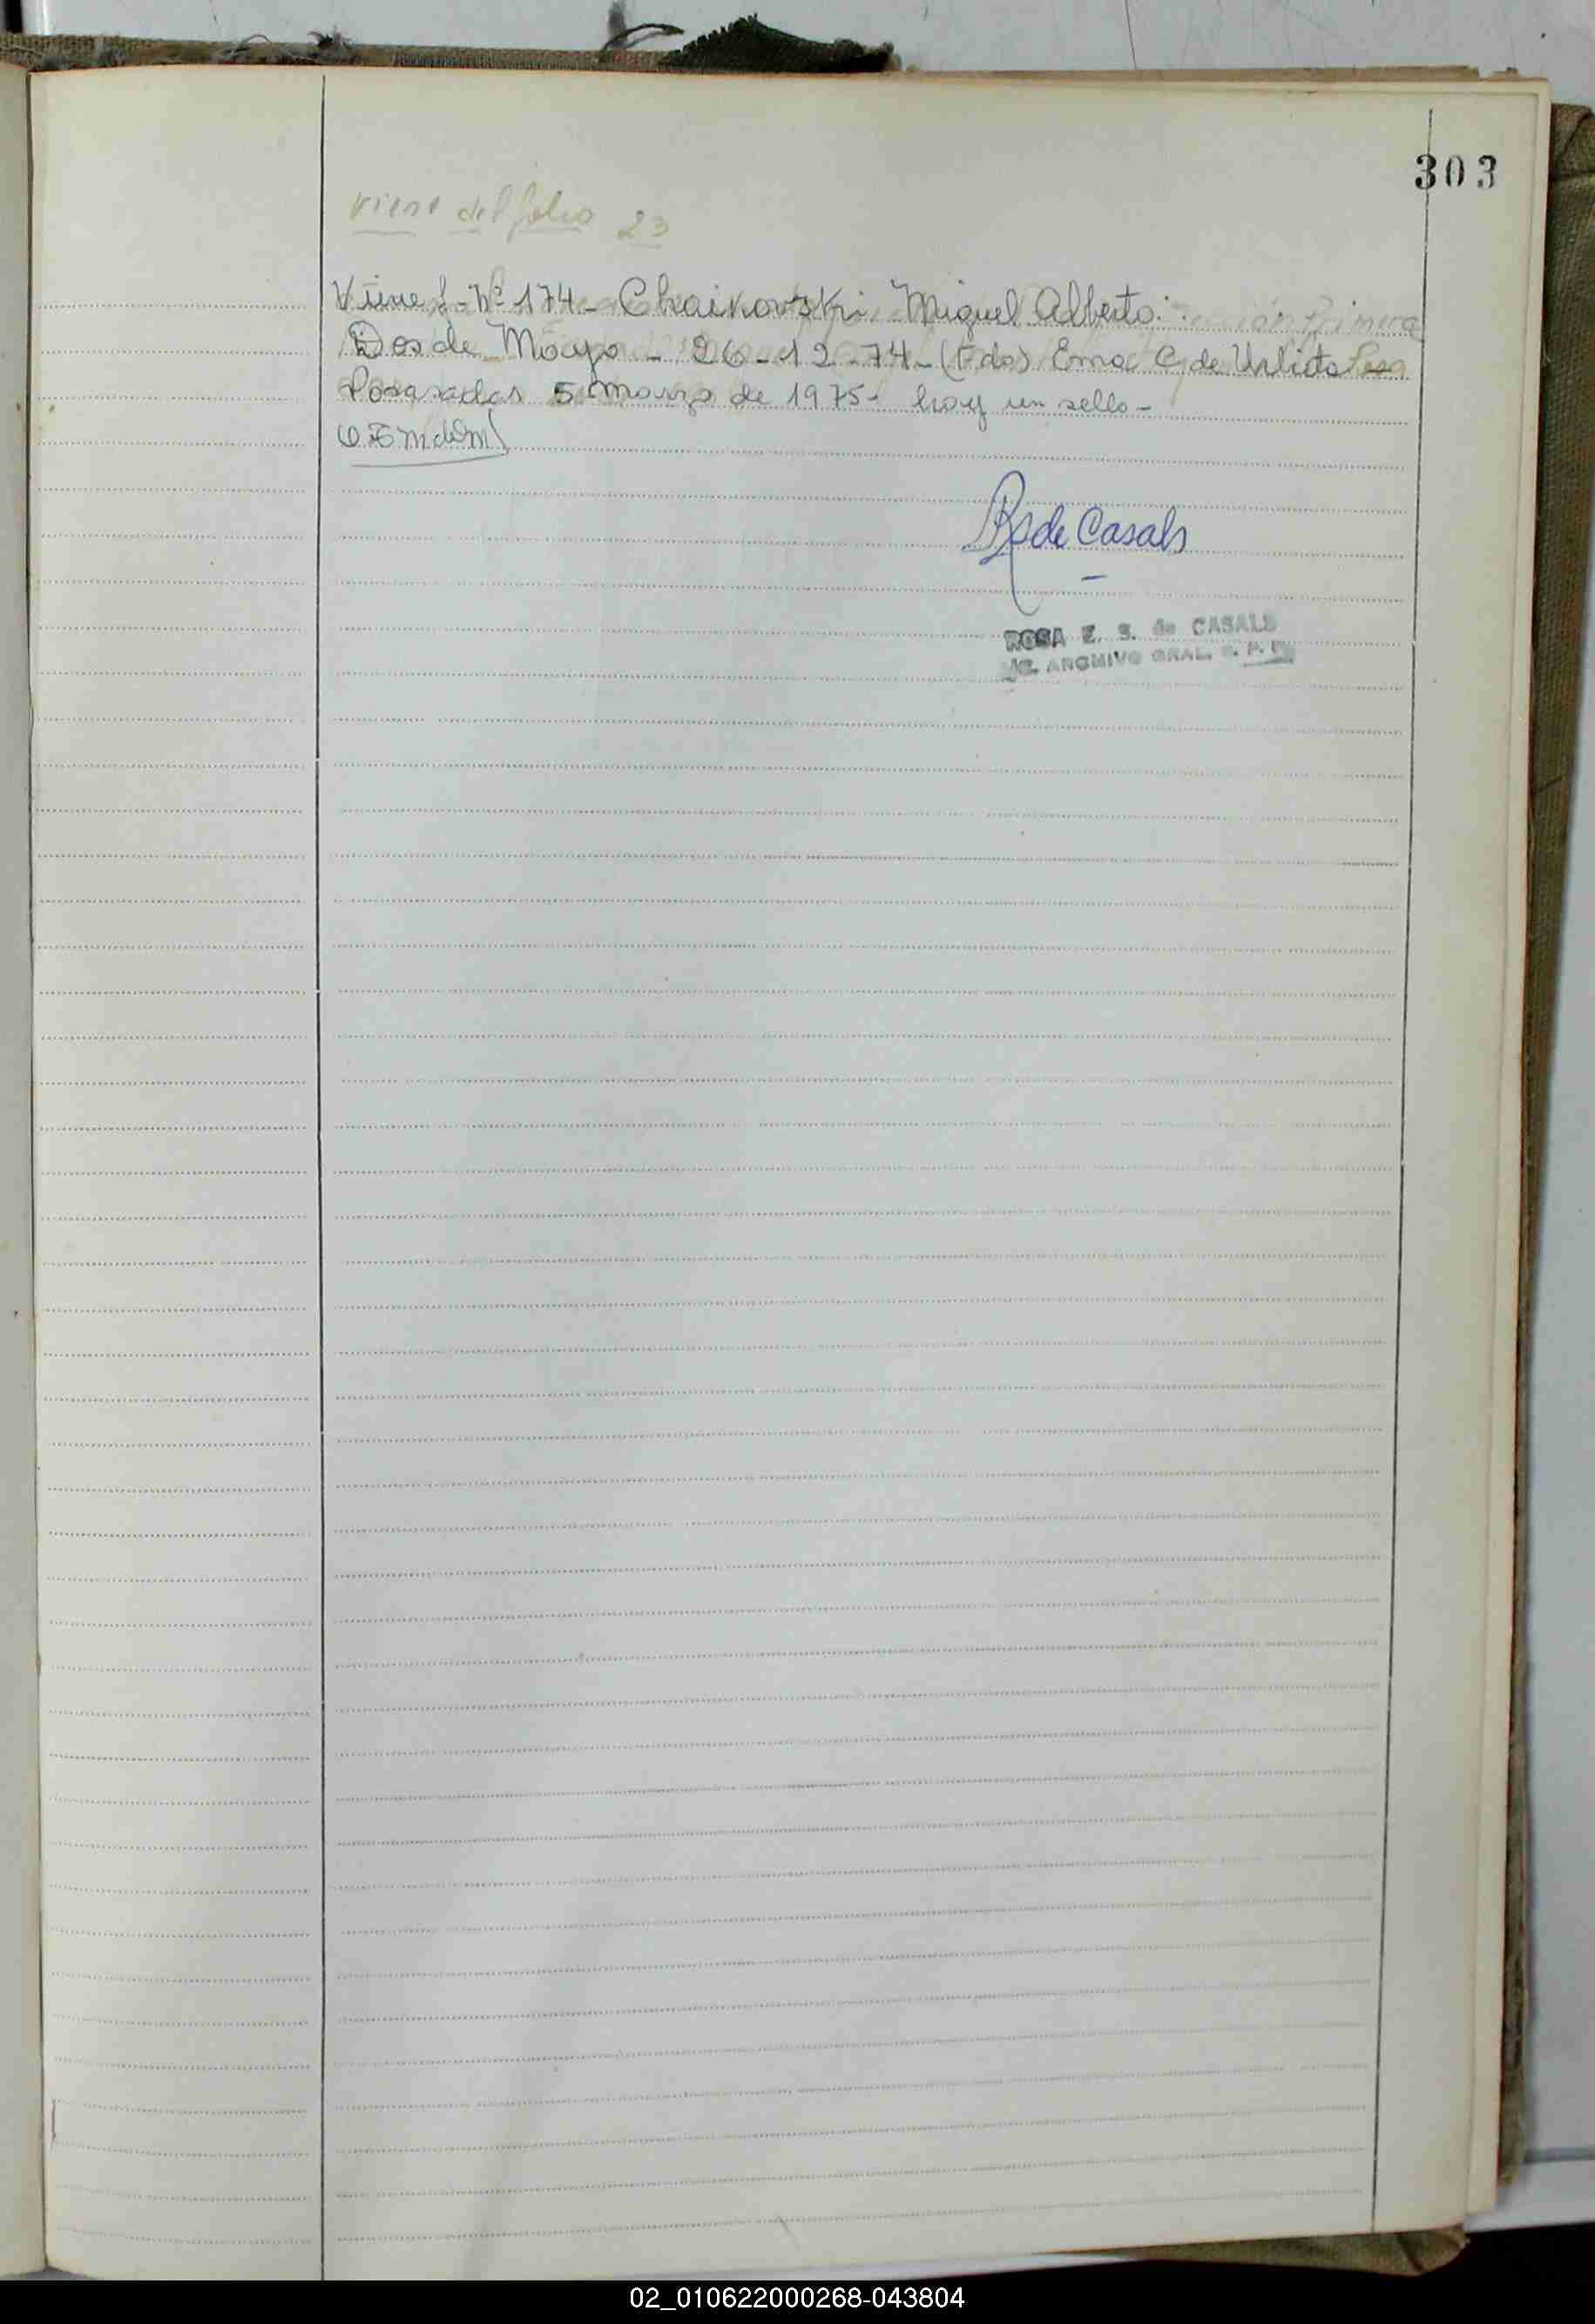 303
viene del folio 23
Viene f- Nº 174- Chaikovski, Miguel Alberto:
Dos de Mayo - 26-12-74-(Fdo) Ema C de Urlieta
Posadas 5 marzo de 1975- hay un sello-
RS de Casals
ROSA E. S. de CASALS
ARCHIVO GRAL. R. P. P.
02_010622000268-043804